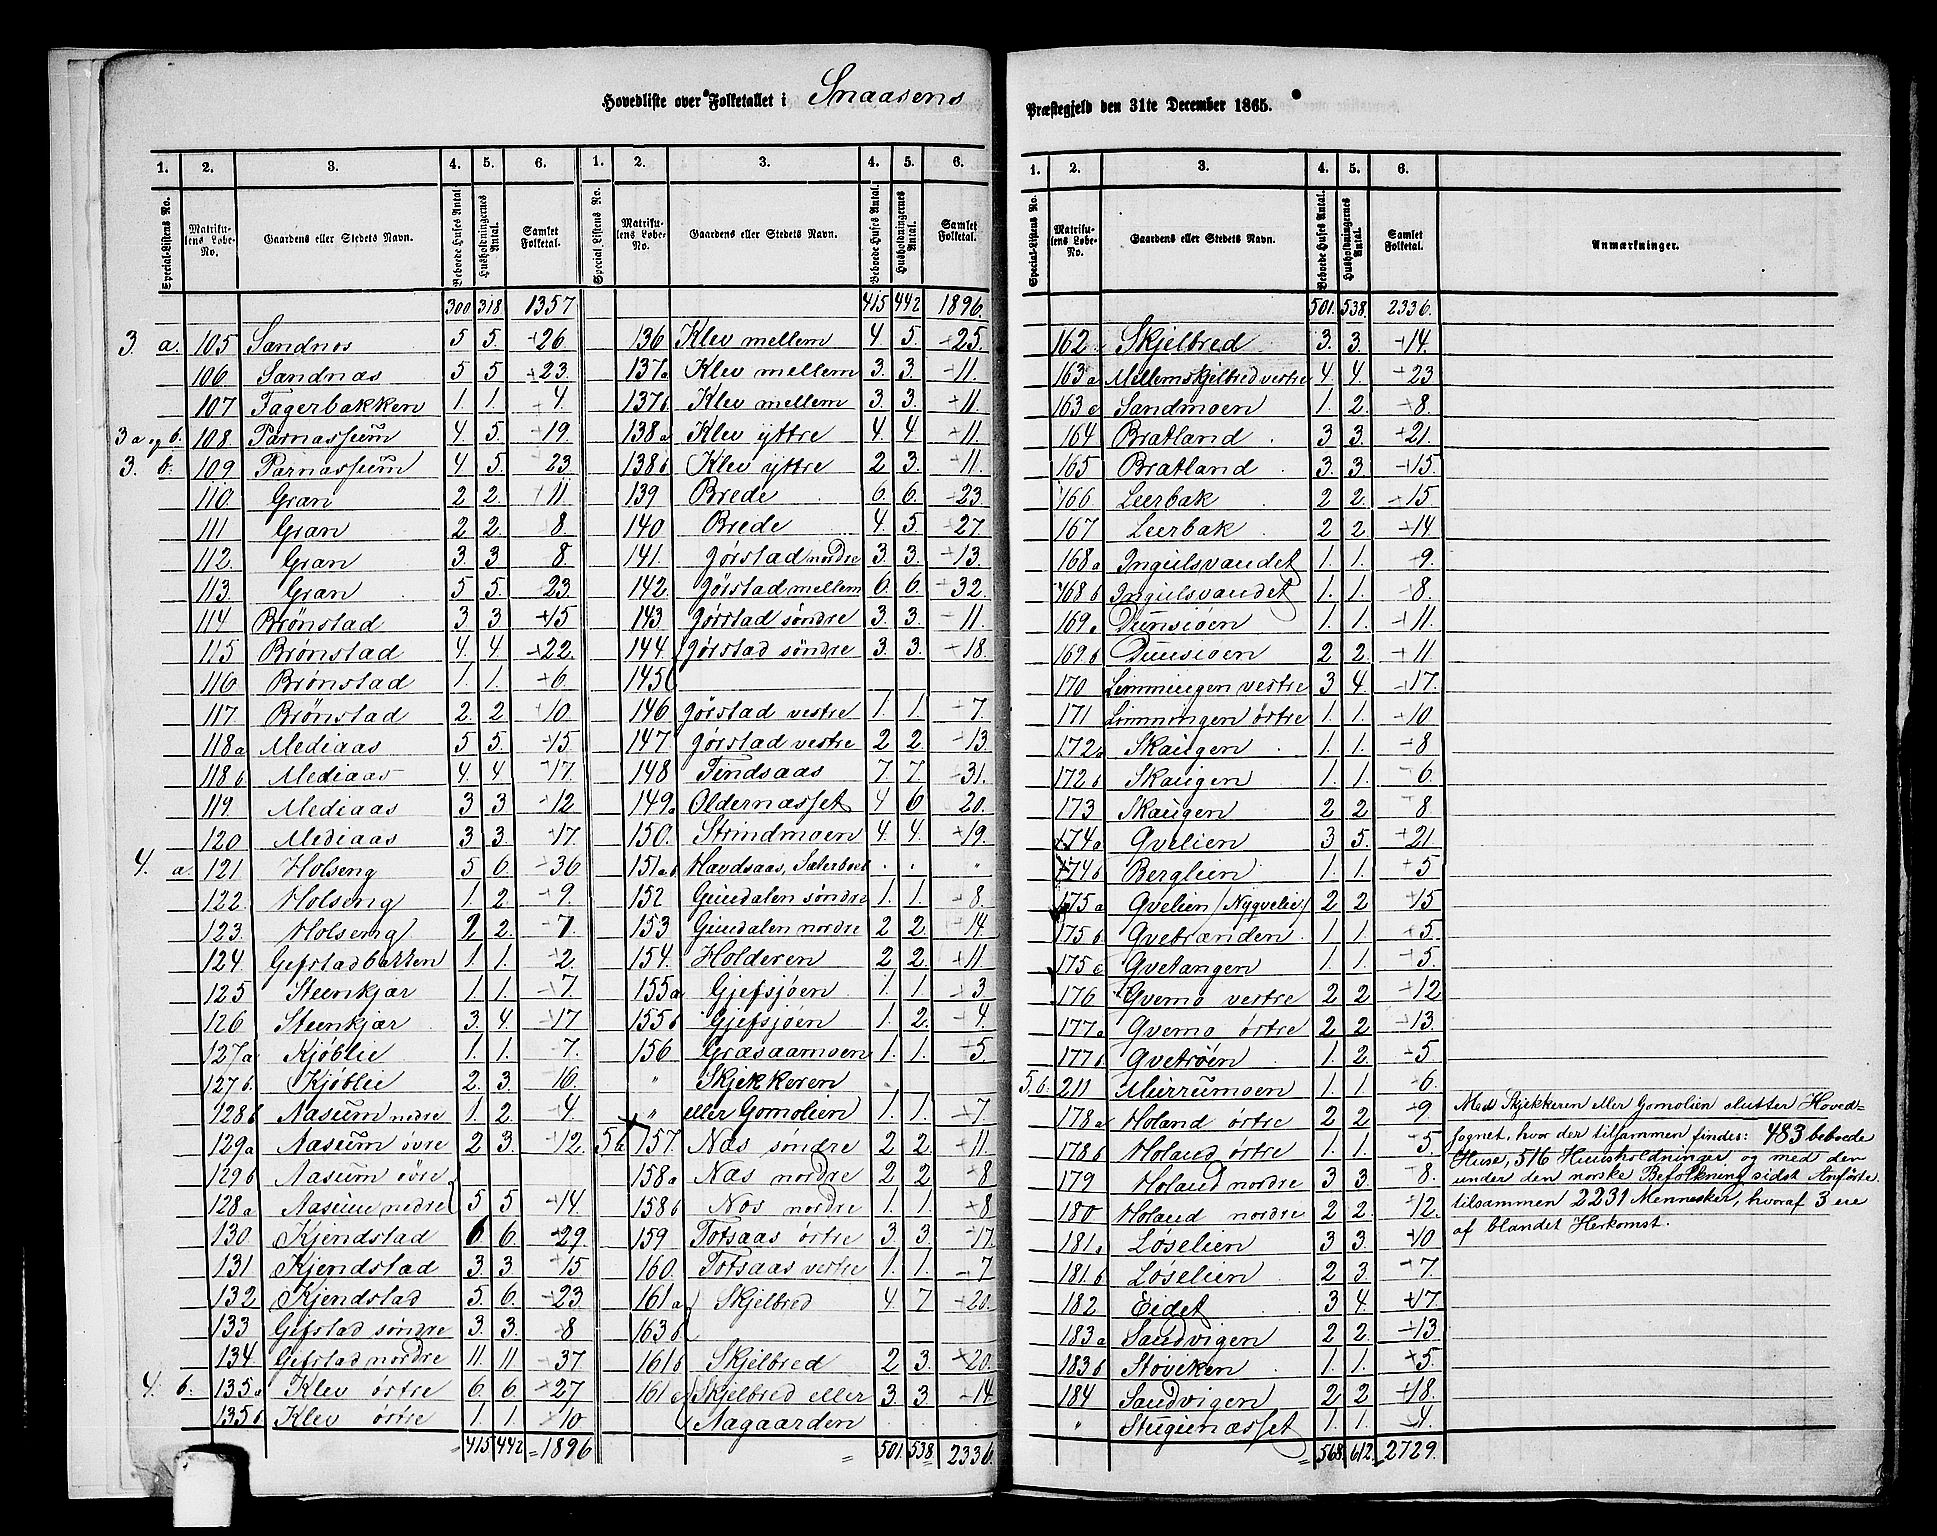 Hovedliste over Folketallet i Snaasens
1. 2. 3. 4. 5. 6. 1. 2. 3. 4. 5. 6.
Special-Listens No. Matrikulens Løbe-No. Gaardens eller Stedets Navn. Beboede Huses Antal Husholdningernes Antal. Samlet Folketal. Special Listens No. Matrikulens Løbe-No. Gaardens eller Stedets Navn. Beboede Huses Antal. Husholdningernes Antal. Samlet Folketal.
300 318 1357
3. a. 105 Sandnes 5 5. 26
106. Sandnæs 5 5 23.
107 Fagerbakken 1. 1. 4.
3 a og b. 108. Parnassum 4. 5. 19.
3. b. 109. Parnassum 4 5. 23
110. Gran 2 2. 11.
111 Gran 2 2. 8.
112. Gran 3 3 8.
113. Gran 5 5. 23.
114 Brønstad 3 3 15
115 Brønstad 4. 4. 22.
116 Brønstad 1. 1. 6.
117. Brønstad 2. 2 10
118a Mediaas 5 5. 15.
118b Mediaas 4. 4 17.
119. Mediaas 3 3 12
120 Mediaas 3 3. 17.
4. a. 121 Holseng 5 6. 36
122. Holseng 1. 2. 9.
123. Holseng 2 2. 7.
124. Gefstadbakken 1. 1. 2.
125 Steenkjær 1. 1. 7.
126 Steenkjær 3. 4. 17
127a Kjøblie 1. 1. 7.
127b. Kjøblie 2. 3. 16.
128b Aasum nedre 1. 2. 4.
129a Aasum øvre 2 3. 12.
129b Aasum øvre
128a Aasum nedre 5 5 14.
130. Kjendstad 6 6. 29
131 Kjendstad 3 3. 15
132 Kjendstad 5. 6. 23
133 Gefstad søndre 3. 3. 8
134. Gefstad nordre 11. 11 37
4. b. 135a Klev østre 6. 6. 27
135b Klev østre 1. 1. 10
415 442 = 1896
415 442 1896.
136 Klev mellem 4 5. 25.
137a Klev mellem 3. 3. 11.
137b Klev mellem 3. 3. 11.
138a Klev yttre 4. 4 11.
138b Klev yttre 2 3. 11.
139 Brede 6. 6. 23.
140 Brede 4. 5 27.
141. Jørstad nordre 3 3. 13.
142. Jørstad mellem 6. 6. 32.
143 Jørstad søndre 3. 3. 11.
144 Jørstad søndre 3 3. 18.
145
146 Jørstad vestre 1. 1. 7.
147 Jørstad vestre 2 2. 13.
148 Findsaas 7. 7. 31.
149a Oldernæsset 4 6 20.
150. Strindmoen 4. 4. 19.
151ab Havdsaas, Sæterboel . . "
152 Guidalen søndre 1. 1. 8.
153 Guidalen nordre 2 2. 14
154. Holderen 2 2. 11
155a Gjefsjøen 1. 1 3
155b Gjefsjøen 1. 2. 4.
156 Græsaamoen 1. 1. 5.
" Skjekkeren
" eller Gomolien 1. 1. 7
5 a 157. Næs søndre 2 2. 11.
158a Næs nordre 2 2 8
158b Næs nordre 1. 1. 8
159 Totsaas østre 3. 3. 17.
160. Totsaas vestre 1. 1. 7
161a Skjelbred 4. 7 20.
163b
161b Skjelbred 2 3. 20.
161c Skjelbred eller 3. 3. 14
Aagaarden
= 501. 538 2336
Præstegjeld den 31te December 1865.
1. 2. 3. 4. 5. 6.
Special-Listens No. Matrikulens Løbe-No. Gaardens eller Stedets Navn. Beboede Huses Antal. Husholdningernes Antal. Samlet Folketal. Anmærkninger.
501. 538. 2336.
162 Skjelbred 3. 3. 14.
163a Mellemskjelbred vestre 4. 4. 23
163c Sandmoen 1. 2. 8.
164 Bratland 3 3. 21.
165 Bratland 3. 3. 15.
166 Leerbak 2 2. 15
167 Leerbak 2 2. 14
168a Ingulsvandet 1. 1. 9.
168b Ingulsvandet 1. 1. 8.
169a Duusiøen 1. 1. 11.
169b Duusiøen 2 2. 11
170 Limmingen vestre 3 4. 17.
171 Limmingen østre 1. 1. 10
172a Skaugen 1. 1. 8
172b Skaugen 1. 1. 6.
173 Skaugen 2 2 8
174a Qvelien 3 5. 21
174b Berglien 1. 1. 5
175a Qvelien (Nyqvelie) 2 2 15
175b Qvetranden 1. 1. 5.
175c Qvetangen 1. 1. 5.
176 Qvemo vestre 2 2 12
177a Qvemo østre 2 2 13.
177b Qvetrøen 1. 2. 5
5.b. 211 Murrumoen 1. 1. 6.
178a Holand østre 2 2 9
178b Holand østre 1. 1. 5.
179 Holand nordre 3 3. 8.
180 Holand nordre 2 2. 12.
181a Løselien 3 3. 10
181b Løselien 2 3. 7.
182 Eidet 3 4. 17
183a Sandvigen 2 2. 13
183b Støviken 1. 1. 5.
184 Sandvigen 2 2 18.
" Stugunæsset 1. 1. 4.
= 568. 612. = 2729.
Med Skjekkeren eller Gomolien slutter Hoved=
sognet, hvor der tilsammen findes: 483 beboede
Huse, 516 Huusholdninger og med den
under den norske Befolkning sidst Anførte
tilsammen 2231 Mennesker, hvoraf 3 ere
af blandet Herkomst.